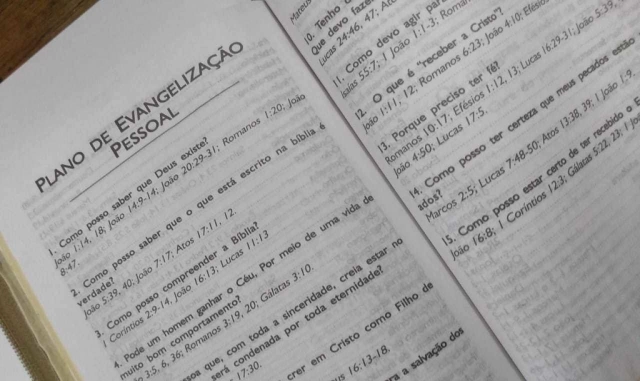 PLANO DE EVANGELIZAÇÃO
PESSOAL
1. Como posso saber que Deus existe?
João 1:14, 18; João 14.9-14; João 20:29-31; Romanos 1:20; João
8:47.
2. Como posso saber que o que está escrito na bíblia é
verdade?
João 5:39, 40; João 7:17; Atos 17:11, 12.
3. Como posso compreender a Bíblia?
1 Coríntios 2:9-14, João 16:13; Lucas 11:13
4. Poda um homem ganhar o Céu. Por meio de uma vida de
muito bom comportamento?
3:5, 6, 36; Romanos 3:19, 20; Gálatas 3:10.
ssoa que, com toda a sinceridade, creia estar no
será condenada por toda eternidade?
17:30.
crer em Cristo como Filho de
16:13-18.
ra a salvação dos
Mateus
10. Tenho
Que devo faze
Lucas 24:46, 47; At
11. Como devo agir para
Isaías 55:7; 1 João 1:1-3; Roman
12. O que é "receber a Cristo"?
João 1:11, 12; Romanos 6:23; João 4:10; Efésios
13. Porque preciso ter fé?
Romanos 10:17; Efésios 1:12, 13; Lucas 16:29-31; João 5:39,
João 4:50; Lucas 17:5.
14. Como posso ter certeza que meus pecados estão
ados?
Marcos 2:5; Lucas 7:48-50; Atos 13:38, 39; 1 João 1:9
15. Como posso estar certo de ter recebido o
João 16:8; 1 Coríntios 12:3; Gálatas 5:22, 23; 1 Jo